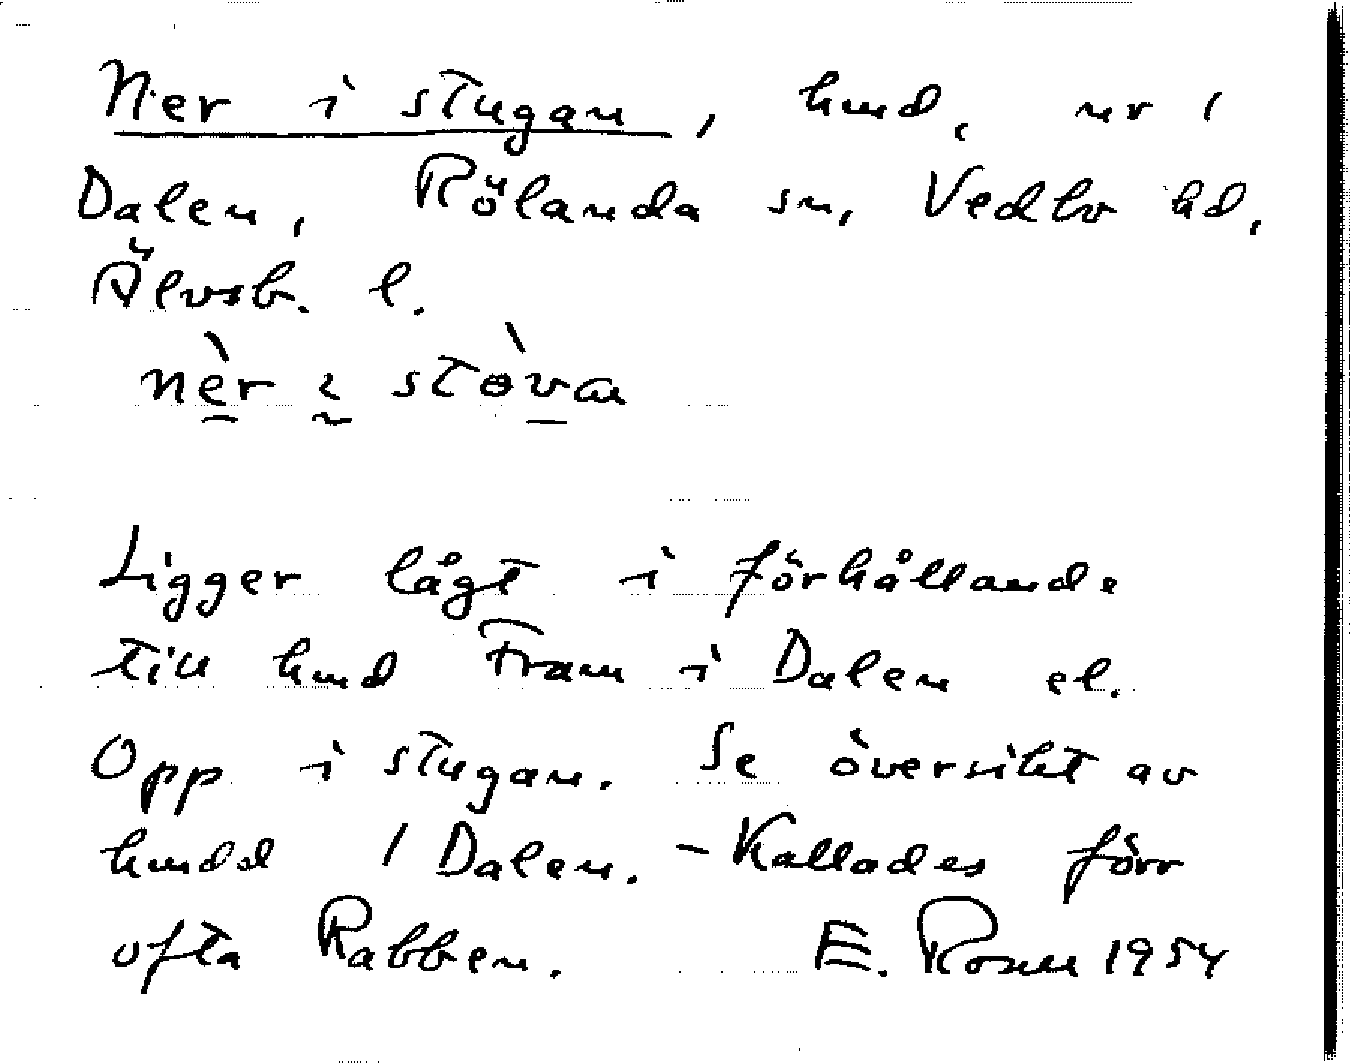 Ner i stugan, hmd, nr 1
Dalen, Rölanda sn, Vedbo hd,
Älvsb. l.
nèr i stòvan
Ligger lågt i förhållande
till hmd Fram i Dalen el.
Opp i stugan. Se översikt av
hmdd 1 Dalen. - Kallades förr
ofta Rabben. E. Rosell 1954